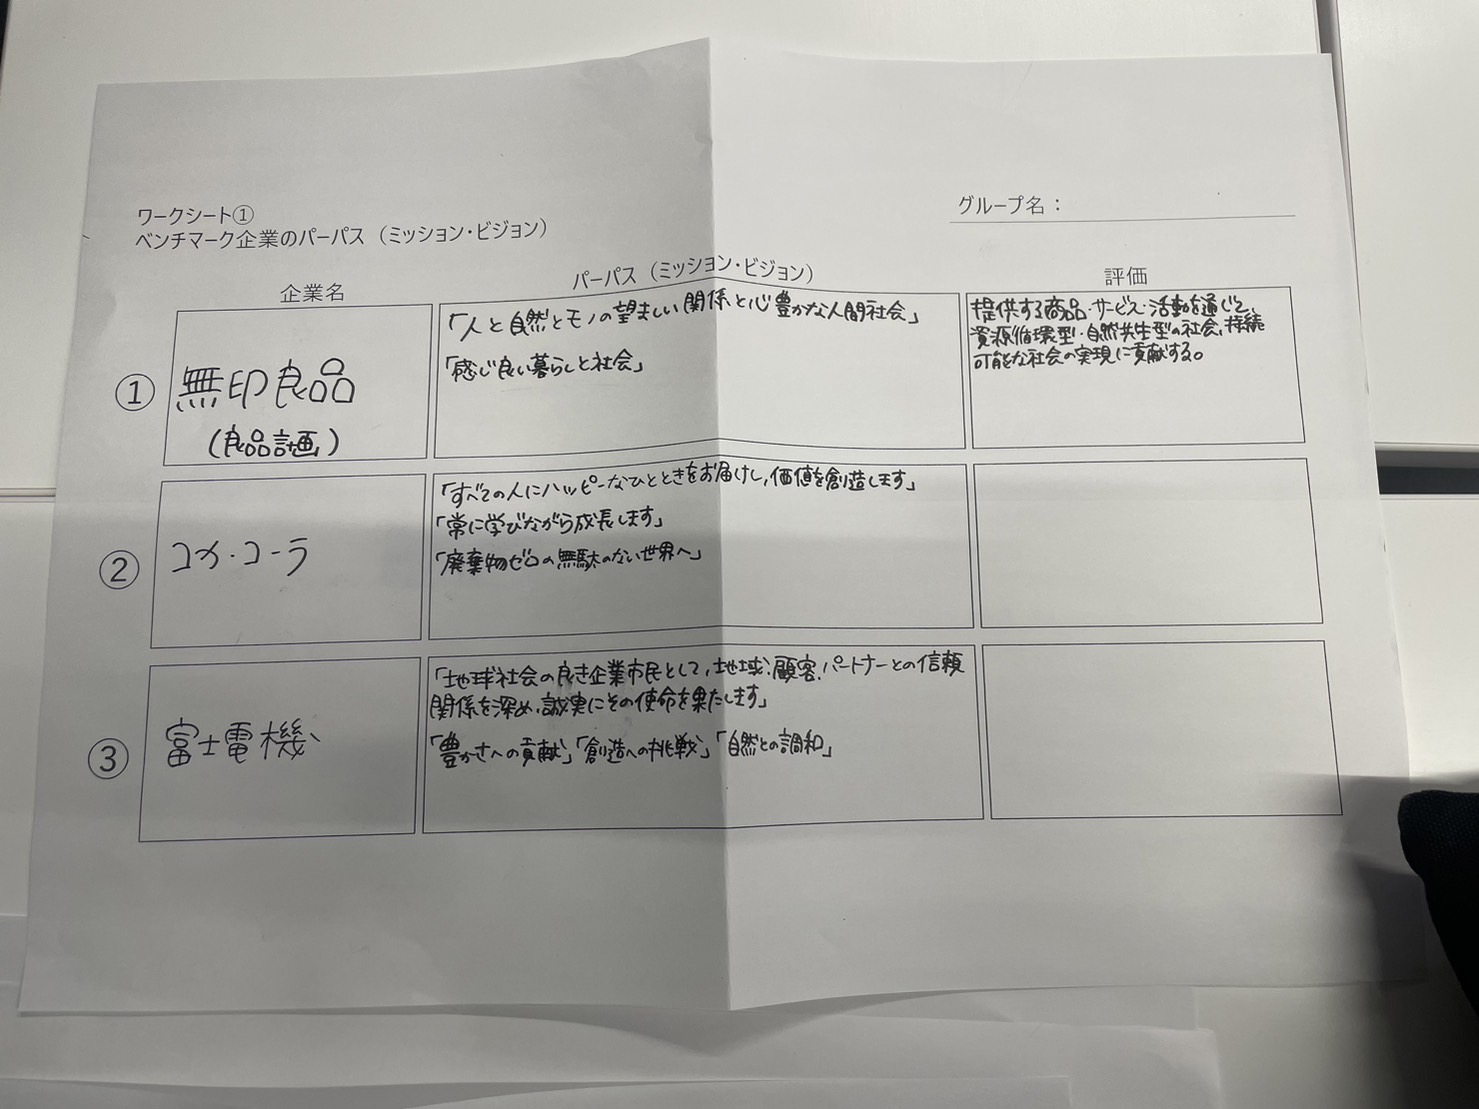 ワークシート①
ベンチマーク企業のパーパス（ミッション・ビジョン）
グループ名：
企業名
パーパス（ミッション・ビジョン）
評価
①
無印良品
（良品計画）
「人と自然とモノの望ましい関係と心豊かな人間社会」
「感じ良い暮らしと社会」
提供する商品・サービス・活動を通じて、
資源循環型・自然共生型の社会、持続
可能な社会の実現に貢献する。
②
コカ・コーラ
「すべての人にハッピーなひとときをお届けし、価値を創造します」
「常に学びながら成長します」
「廃棄物ゼロの無駄のない世界へ」
③
富士電機
「地球社会の良き企業市民として、地域、顧客、パートナーとの信頼
関係を深め、誠実にその使命を果たします」
「豊かさへの貢献」「創造への挑戦」「自然との調和」